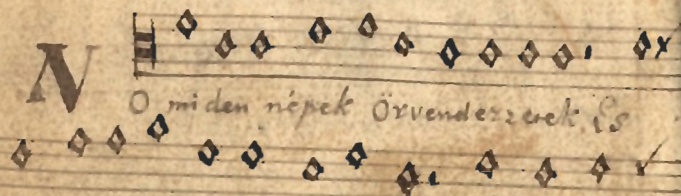 NO miden népek Örvendezzetek, Es